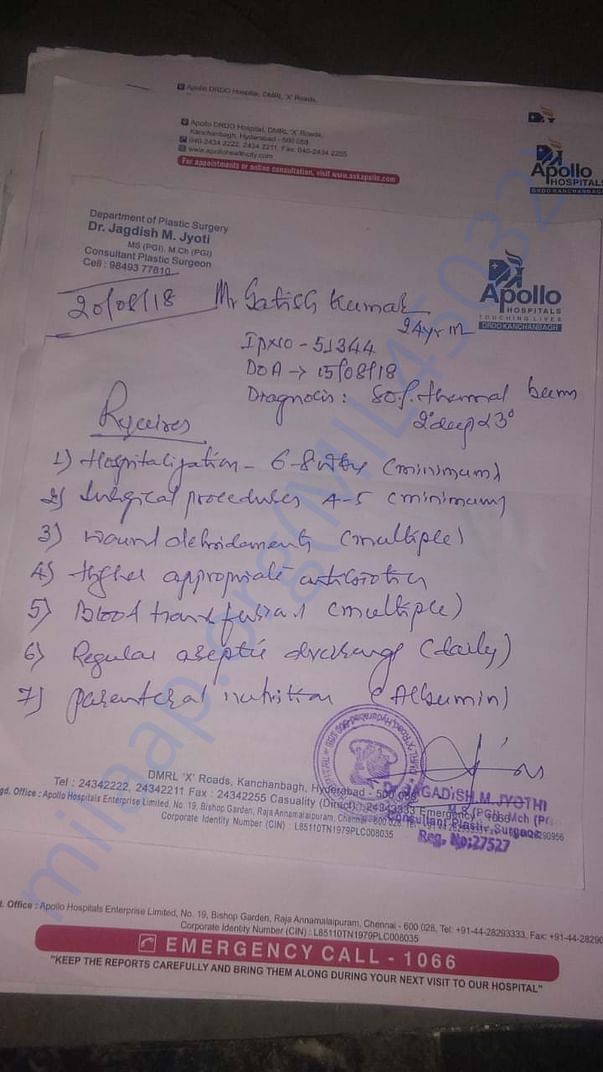 Apollo DRDO Hospital, DMRL 'X' Roads,
Apollo DRDO Hospital, DMRL 'X' Roads,
Kanchanbagh, Hyderabad - 500 058
040-2434 2222, 2434 2211, Fax: 040-2434 2255
www.apollohealthcity.com
For appointments or online consultation, visit www.askapollo.com
Apollo
HOSPITALS
DRDO KANCHANBAGH
Department of Plastic Surgery
Dr. Jagdish M. Jyoti
MS (PGI), M.Ch (PGI)
Consultant Plastic Surgeon
Cell : 98493 77810
Apollo
HOSPITALS
TOUCHING LIVES
DRDO KANCHANBAGH
20/08/18 Mr Satish Kumar
24yr m
IpNo - 51344
DOA → 15/08/18
Diagnosis : 50% thermal burn
2° deep & 3°
Requires
1) Hospitalization - 6-8 wks (minimum)
2) Surgical procedures 4-5 (minimum)
3) wound debridements (multiple)
4) Higher appropriate antibiotics
5) Blood transfusion (multiple)
6) Regular aseptic dressings (daily)
7) parenteral nutrition (Albumin)
DMRL 'X' Roads, Kanchanbagh, Hyderabad - 500 058
Tel : 24342222, 24342211 Fax : 24342255 Casuality (Direct) : 24343333 Emergency : 1066
gd. Office : Apollo Hospitals Enterprise Limited, No. 19, Bishop Garden, Raja Annamalaipuram, Chennai - 600 028,
Corporate Identity Number (CIN) : L85110TN1979PLC008035
Dr. JAGADISH.M.JYOTHI
M.S (PGI), Mch
Consultant Plastic Surgeon
Reg. No:27527
d. Office : Apollo Hospitals Enterprise Limited, No. 19, Bishop Garden, Raja Annamalaipuram, Chennai - 600 028, Tel: +91-44-28293333, Fax: +91-44-28290
Corporate Identity Number (CIN) : L85110TN1979PLC008035
EMERGENCY CALL - 1066
"KEEP THE REPORTS CAREFULLY AND BRING THEM ALONG DURING YOUR NEXT VISIT TO OUR HOSPITAL"